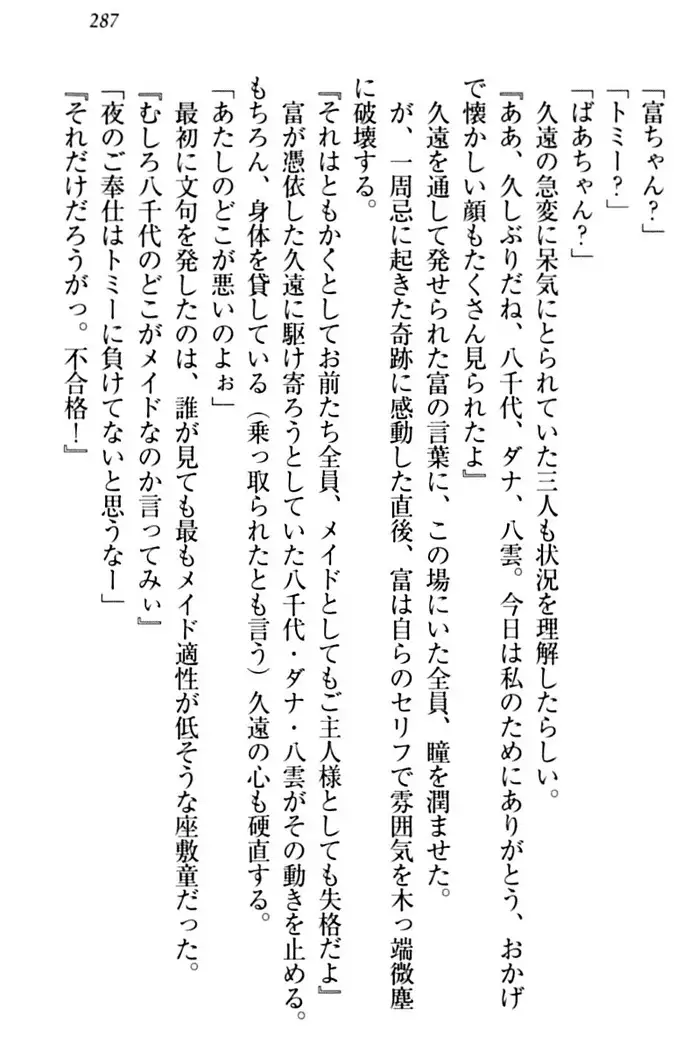 287
「富ちゃん？」
「トミー？」
「ばあちゃん？」
久遠の急変に呆気にとられていた三人も状況を理解したらしい。
『ああ、久しぶりだね、八千代、ダナ、八雲。今日は私のためにありがとう、おかげ
で懐かしい顔もたくさん見られたよ』
久遠を通して発せられた富の言葉に、この場にいた全員、瞳を潤ませた。
が、一周忌に起きた奇跡に感動した直後、富は自らのセリフで雰囲気を木っ端微塵
に破壊する。
『それはともかくとしてお前たち全員、メイドとしてもご主人様としても失格だよ』
富が憑依した久遠に駆け寄ろうとしていた八千代・ダナ・八雲がその動きを止める。
もちろん、身体を貸している（乗っ取られたとも言う）久遠の心も硬直する。
「あたしのどこが悪いのよぉ」
最初に文句を発したのは、誰が見ても最もメイド適性が低そうな座敷童だった。
『むしろ八千代のどこがメイドなのか言ってみぃ』
「夜のご奉仕はトミーに負けてないと思うなー」
『それだけだろうがっ。不合格！』